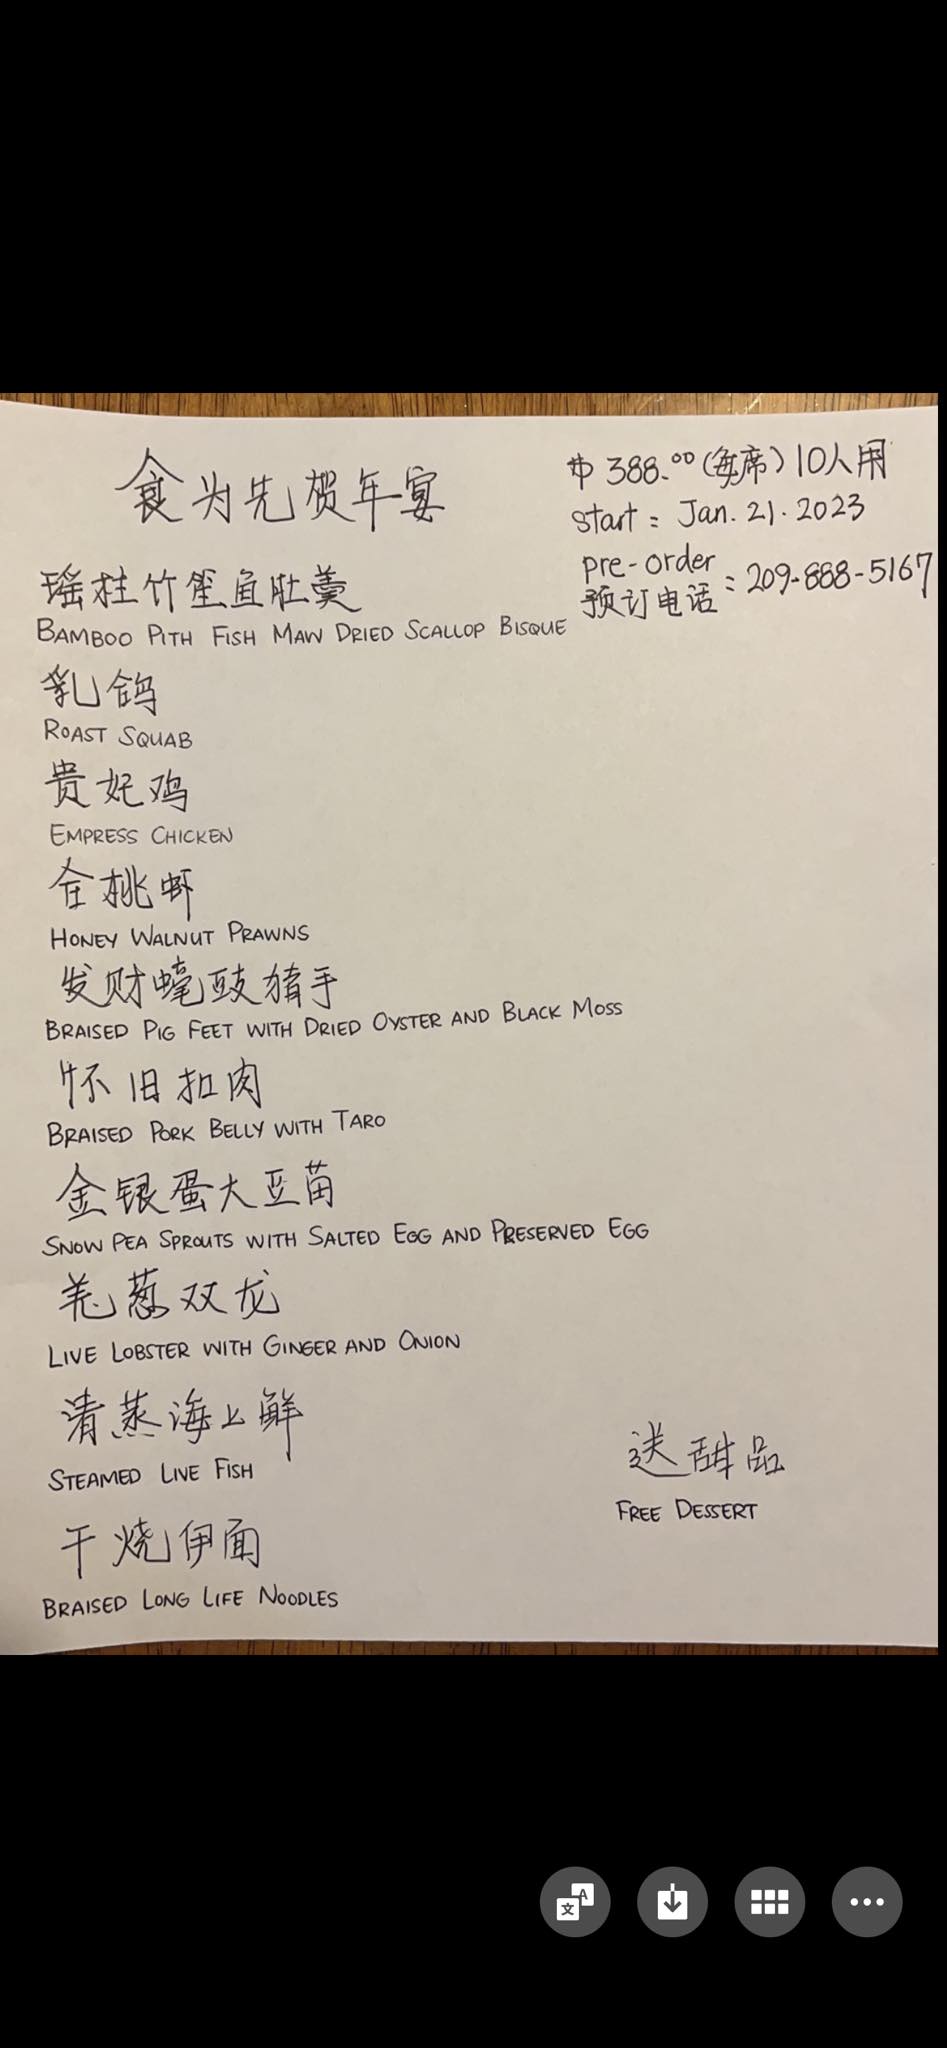 食为先贺年宴
$388.00(每席)10人用
start: Jan.21.2023
pre-order
预订电话: 209-888-5167
瑶柱竹笙鱼肚羹
BAMBOO PITH FISH MAW DRIED SCALLOP BISQUE
乳鸽
ROAST SQUAB
贵妃鸡
EMPRESS CHICKEN
合桃虾
HONEY WALNUT PRAWNS
发财蠔豉猪手
BRAISED PIG FEET WITH DRIED OYSTER AND BLACK MOSS
怀旧扣肉
BRAISED PORK BELLY WITH TARO
金银蛋大豆苗
SNOW PEA SPROUTS WITH SALTED EGG AND PRESERVED EGG
羌葱双龙
LIVE LOBSTER WITH GINGER AND ONION
清蒸海上鲜
STEAMED LIVE FISH
送甜品
FREE DESSERT
干烧伊面
BRAISED LONG LIFE NOODLES